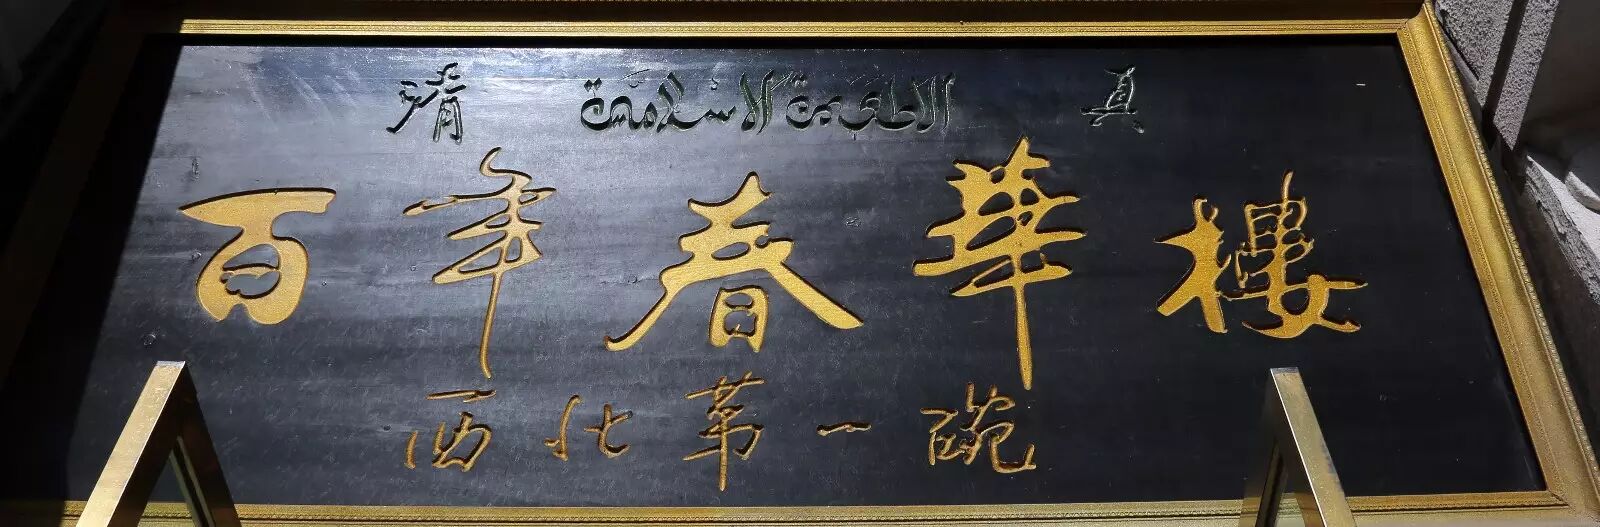 清 الاطعمة الاسلامية 真
百年春華樓
西北第一碗